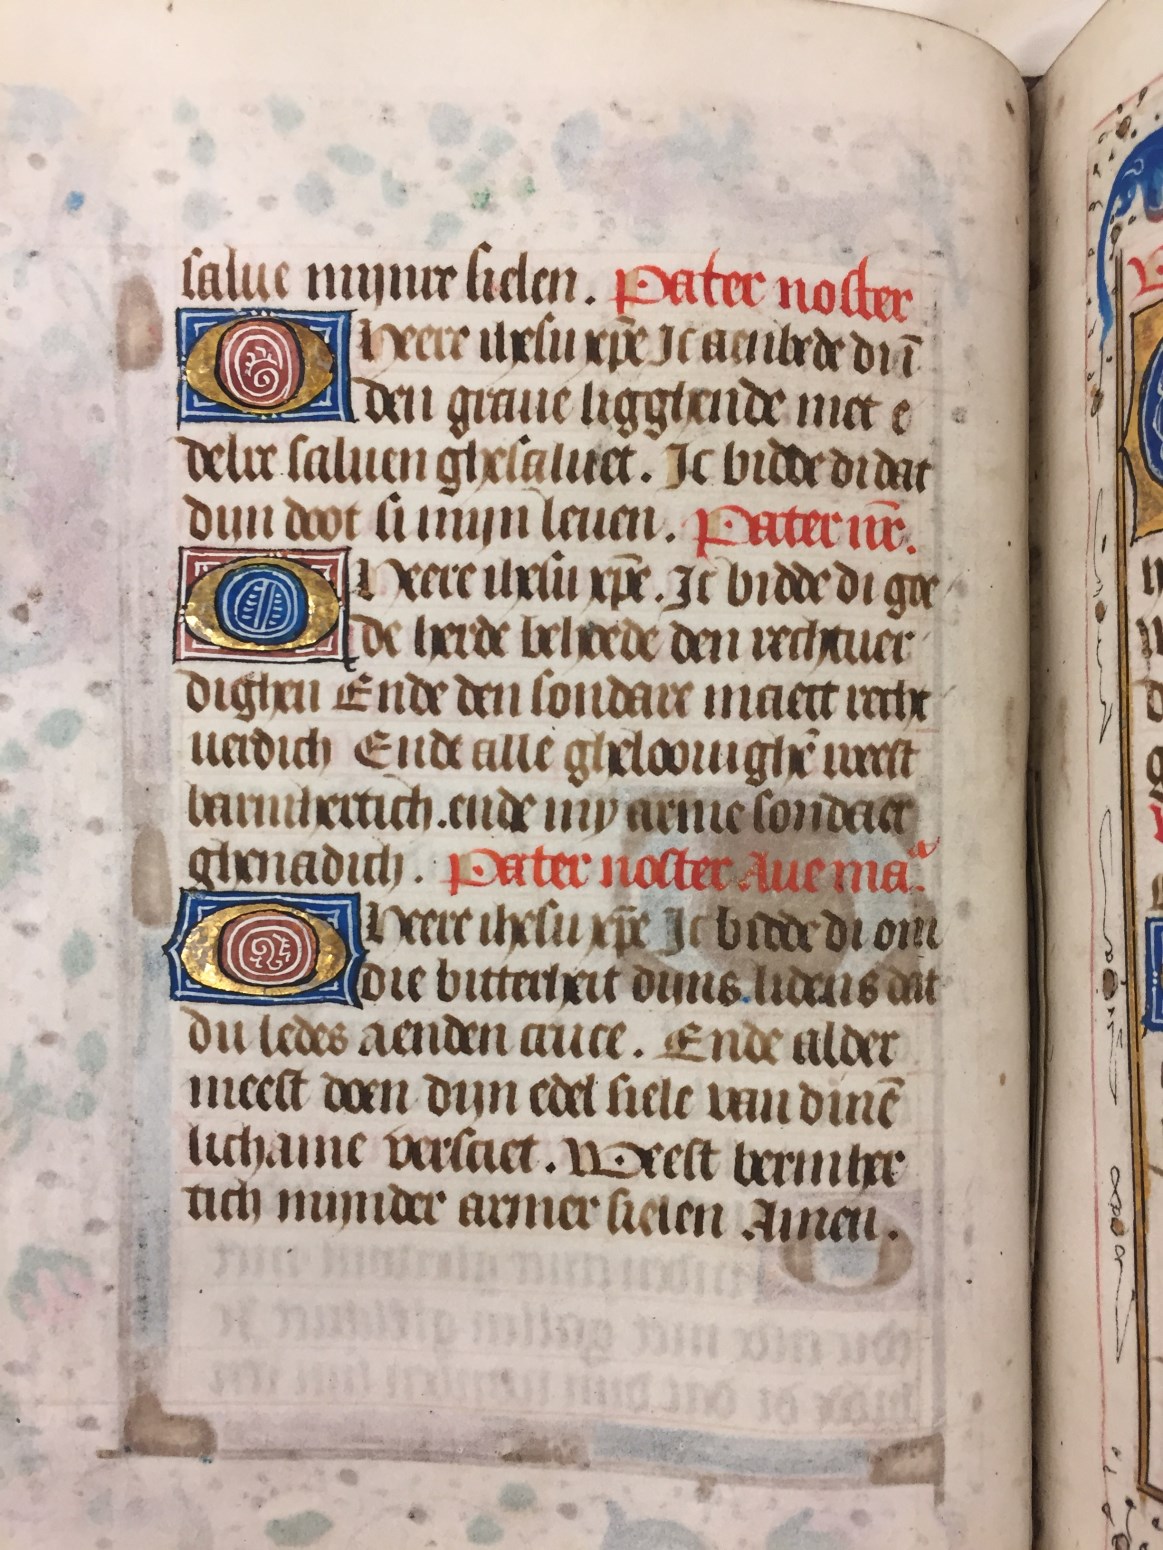 salue mijnre sielen. Pater noster
O Heere ihesu xpē Ic aenbede di īn
den graue ligghende met e
delre saluen ghesaluet. Ic bidde di dat
dijn doot si mijn leuen. Pater nr̄.
O Heere ihesu xpē. Ic bidde di goe
de herde behoede den rechtuer
dighen Ende den sondare maect recht
uerdich Ende alle ghelouighē weest
barmhertich. ende my arme sondaer
ghenadich. Pater noster Aue maᵃ.
O Heere ihesu xpē Ic bidde di om
die bitterheit dijns lidens dat
du ledes aenden cruce. Ende alder
meest doen dijn edel siele van dinē
lichame versciet. Weest bermher
tich mijnder armer sielen Amen.